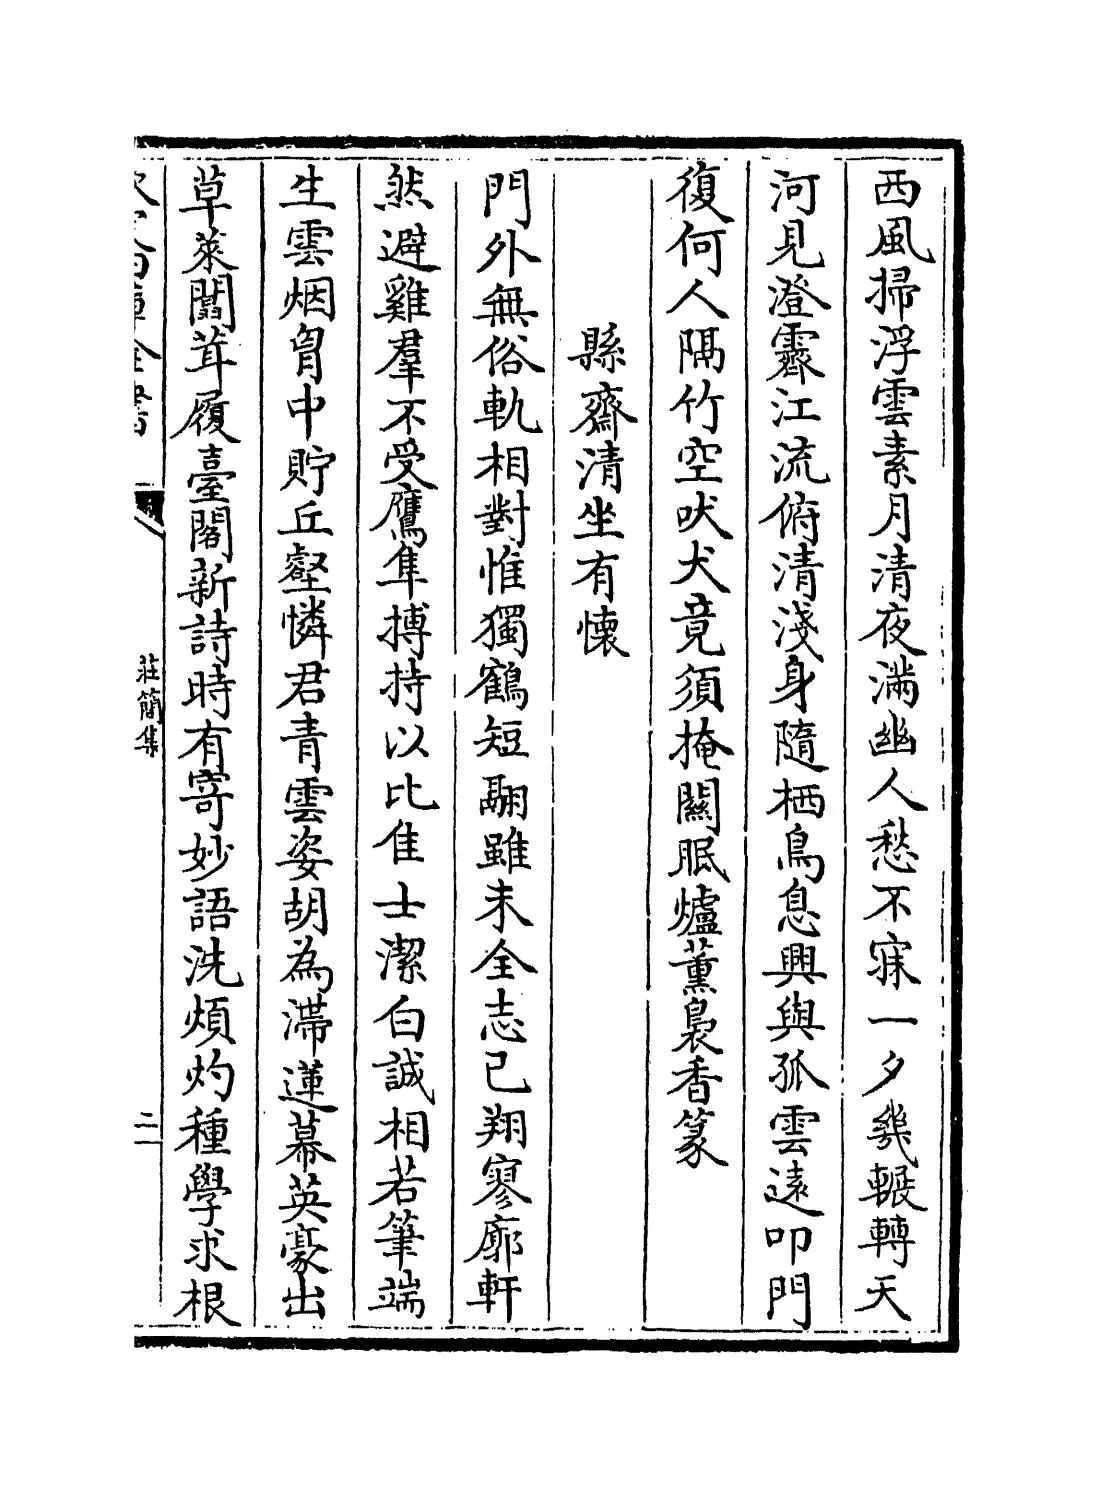 西風掃浮雲素月清夜滿幽人愁不寐一夕幾輾轉天
河見澄霽江流俯清淺身隨栖鳥息興與孤雲遠叩門
復何人隔竹空吠犬竟須掩關眠爐薰裊香篆
縣齋清坐有懷
門外無俗軌相對惟獨鶴短翮雖未全志已翔寥廓軒
然避雞羣不受鷹隼搏持以比佳士潔白誠相若筆端
生雲烟胷中貯丘壑憐君青雲姿胡為滯蓮幕英豪出
草萊闒茸履臺閣新詩時有寄妙語洗煩灼種學求根
莊簡集
二